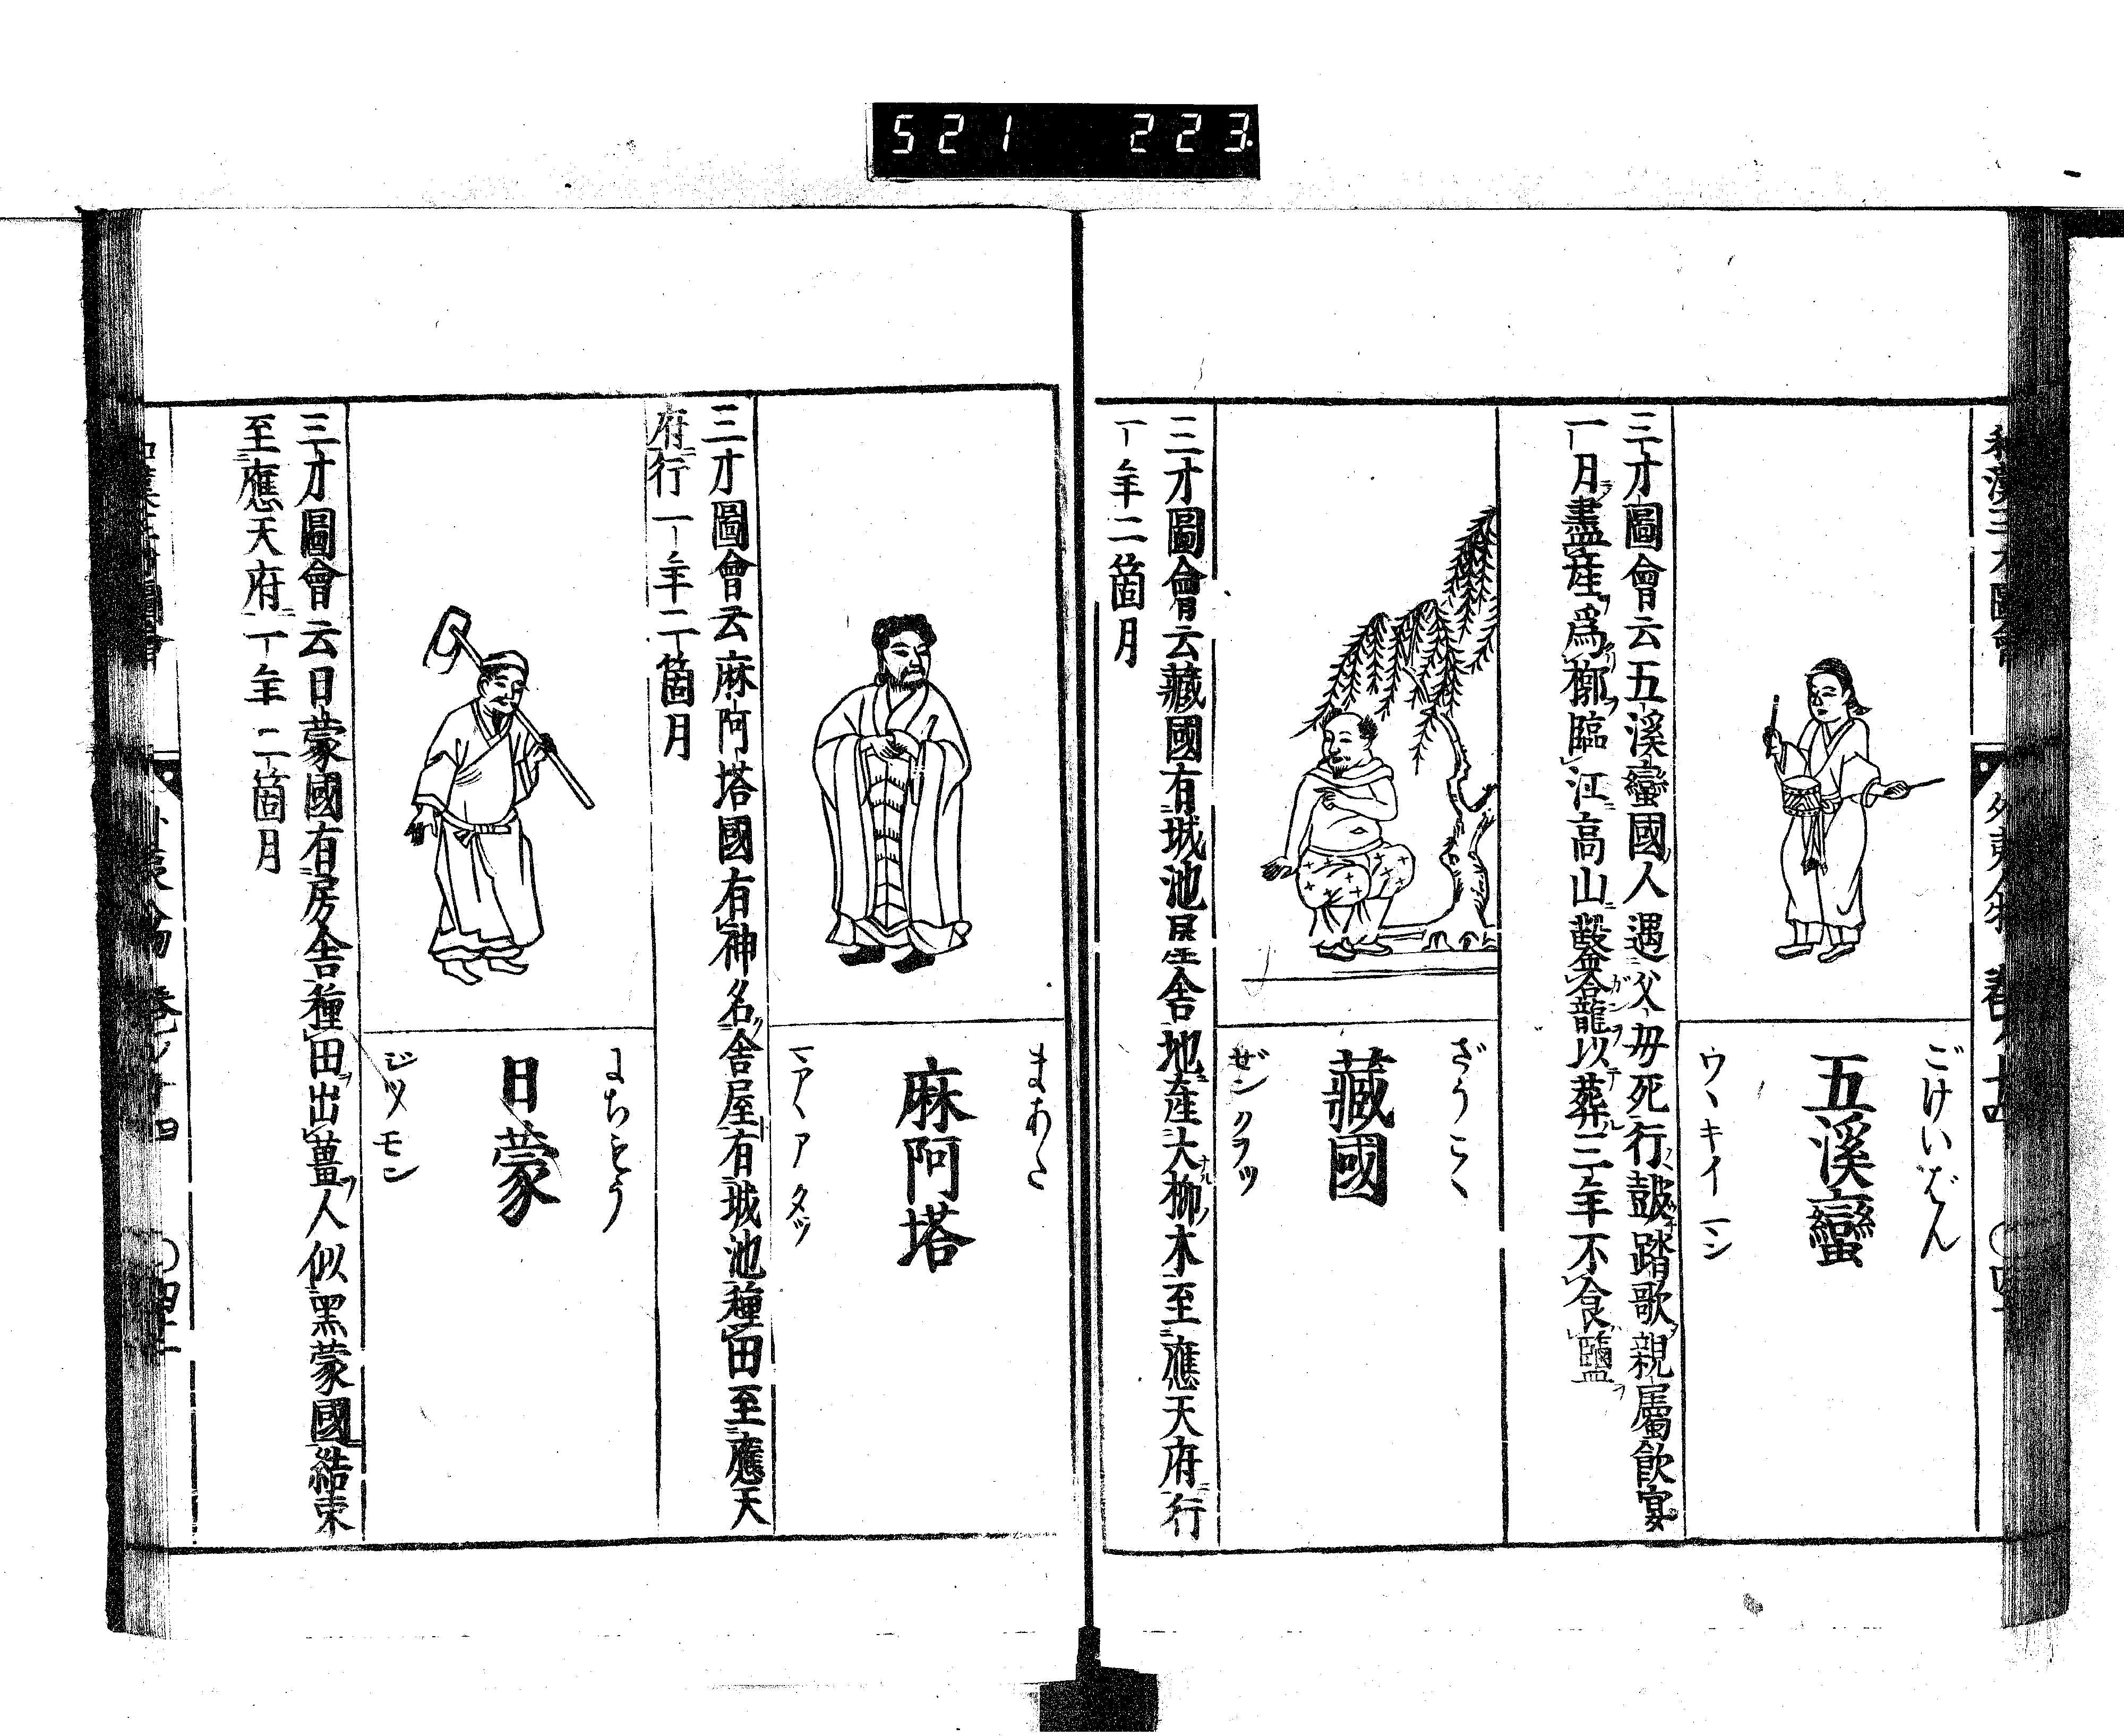 521 223
ごけいばん
五溪蠻
ウヽキイマン
三才圖會云五溪蠻國人遇父母死行鼓踏歌親屬飲宴
一月盡産爲槨臨江高山鑿龕以葬三年不食鹽
ざうこく
藏國
ザンクヲツ
三才圖會云藏國有城池居舍地產大柳木至應天府行
一年二箇月
まあた
麻阿塔
マアヽアタツ
三才圖會云麻阿塔國有神名舍屋有城池種田至應天
府行一年二箇月
にちもう
日蒙
ジツモン
三才圖會云日蒙國有房舍種田出薑人似黑蒙國結束
至應天府一年二箇月